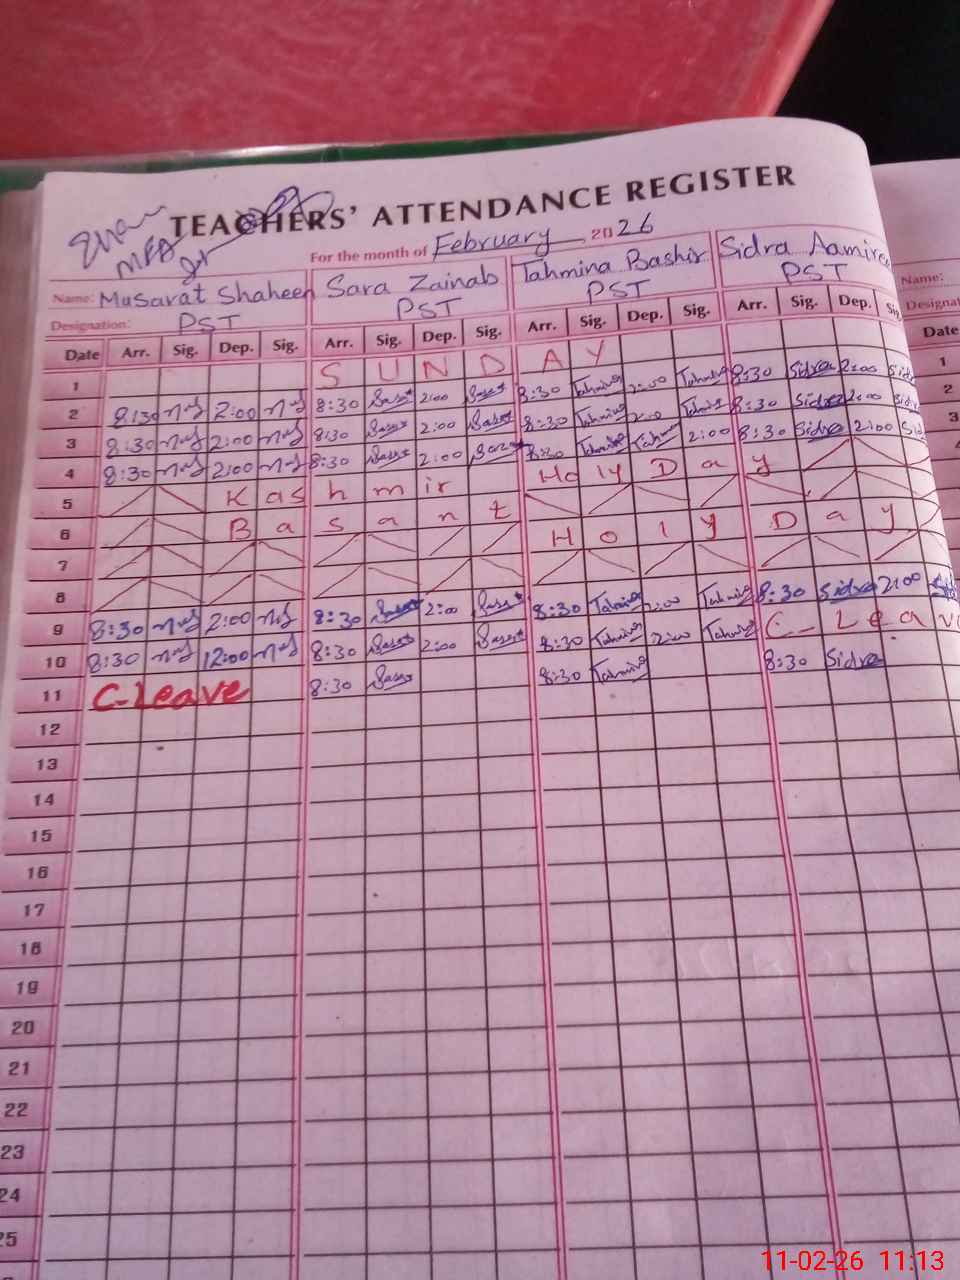 TEACHERS' ATTENDANCE REGISTER
For the month of February 2026
Name: Musarat Shaheen Sara Zainab Tahmina Bashir Sidra Aamire
Name:
Designation: PST PST PST PST
Designat
Date Arr. Sig. Dep. Sig. Arr. Sig. Dep. Sig. Arr. Sig. Dep. Sig. Arr. Sig. Dep. Sig
Date
1 SUNDAY
2 8:30 2:00 8:30 2:00 8:30 Tahmina 2:00 Tahmina 8:30 Sidra 2:00 Sidr
3 8:30 2:00 8:30 2:00 8:30 Tahmina 2:00 Tahmina 8:30 Sidra 2:00 Sidr
4 8:30 2:00 8:30 2:00 8:30 Tahmina Tahmina 2:00 8:30 Sidra 2:00 Sid
5 Kashmir Holy Day
6 Basant Holy Day
7
8
9 8:30 2:00 8:30 2:00 8:30 Tahmina 2:00 Tahmina 8:30 Sidra 2:00
10 8:30 12:00 8:30 2:00 8:30 Tahmina 2:00 Tahmina C-Leav
11 C-Leave 8:30 8:30 Tahmina 8:30 Sidra
12
13
14
15
16
17
18
19
20
21
22
23
24
25
1
2
3
4
5
6
7
8
9
10
11-02-26 11:13